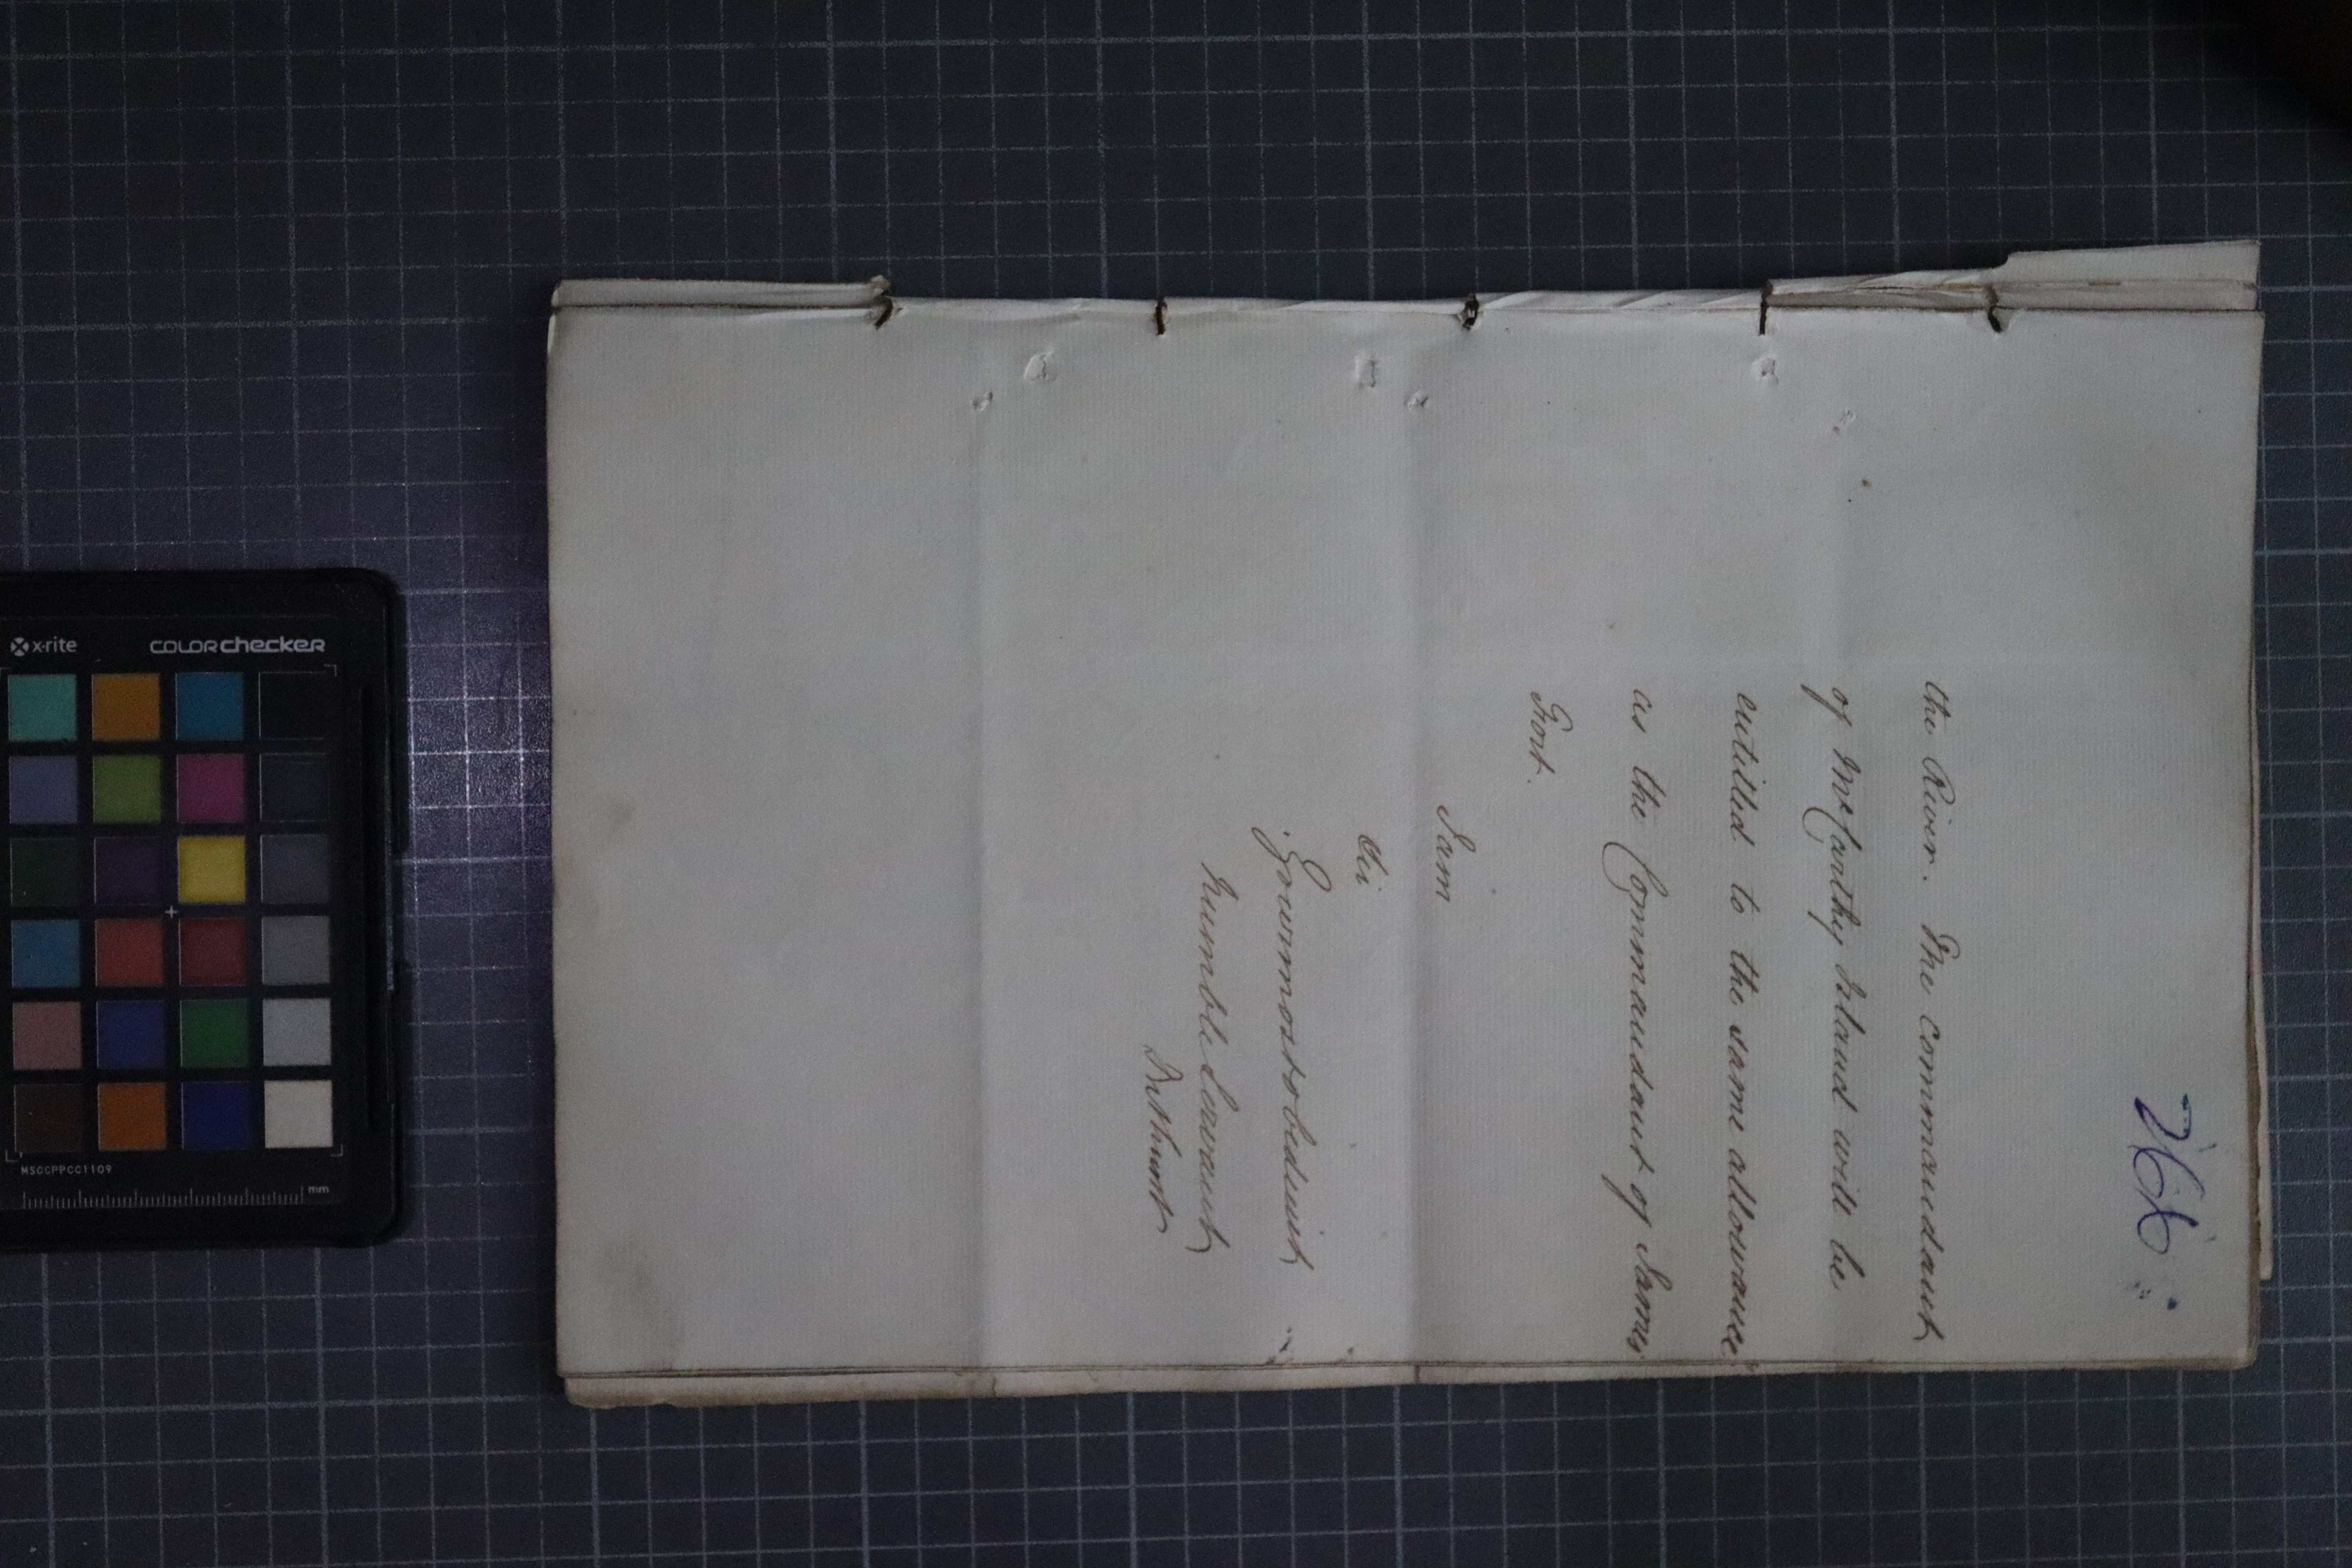 266
the River. The commandant
of McCarthy Island will be
entitled to the same allowance
as the Commandant of James
Fort.
I am
Sir
Your most obedient
humble Servant
Bathurst
x-rite
COLORchecker
MSCCPPCC1109
mm